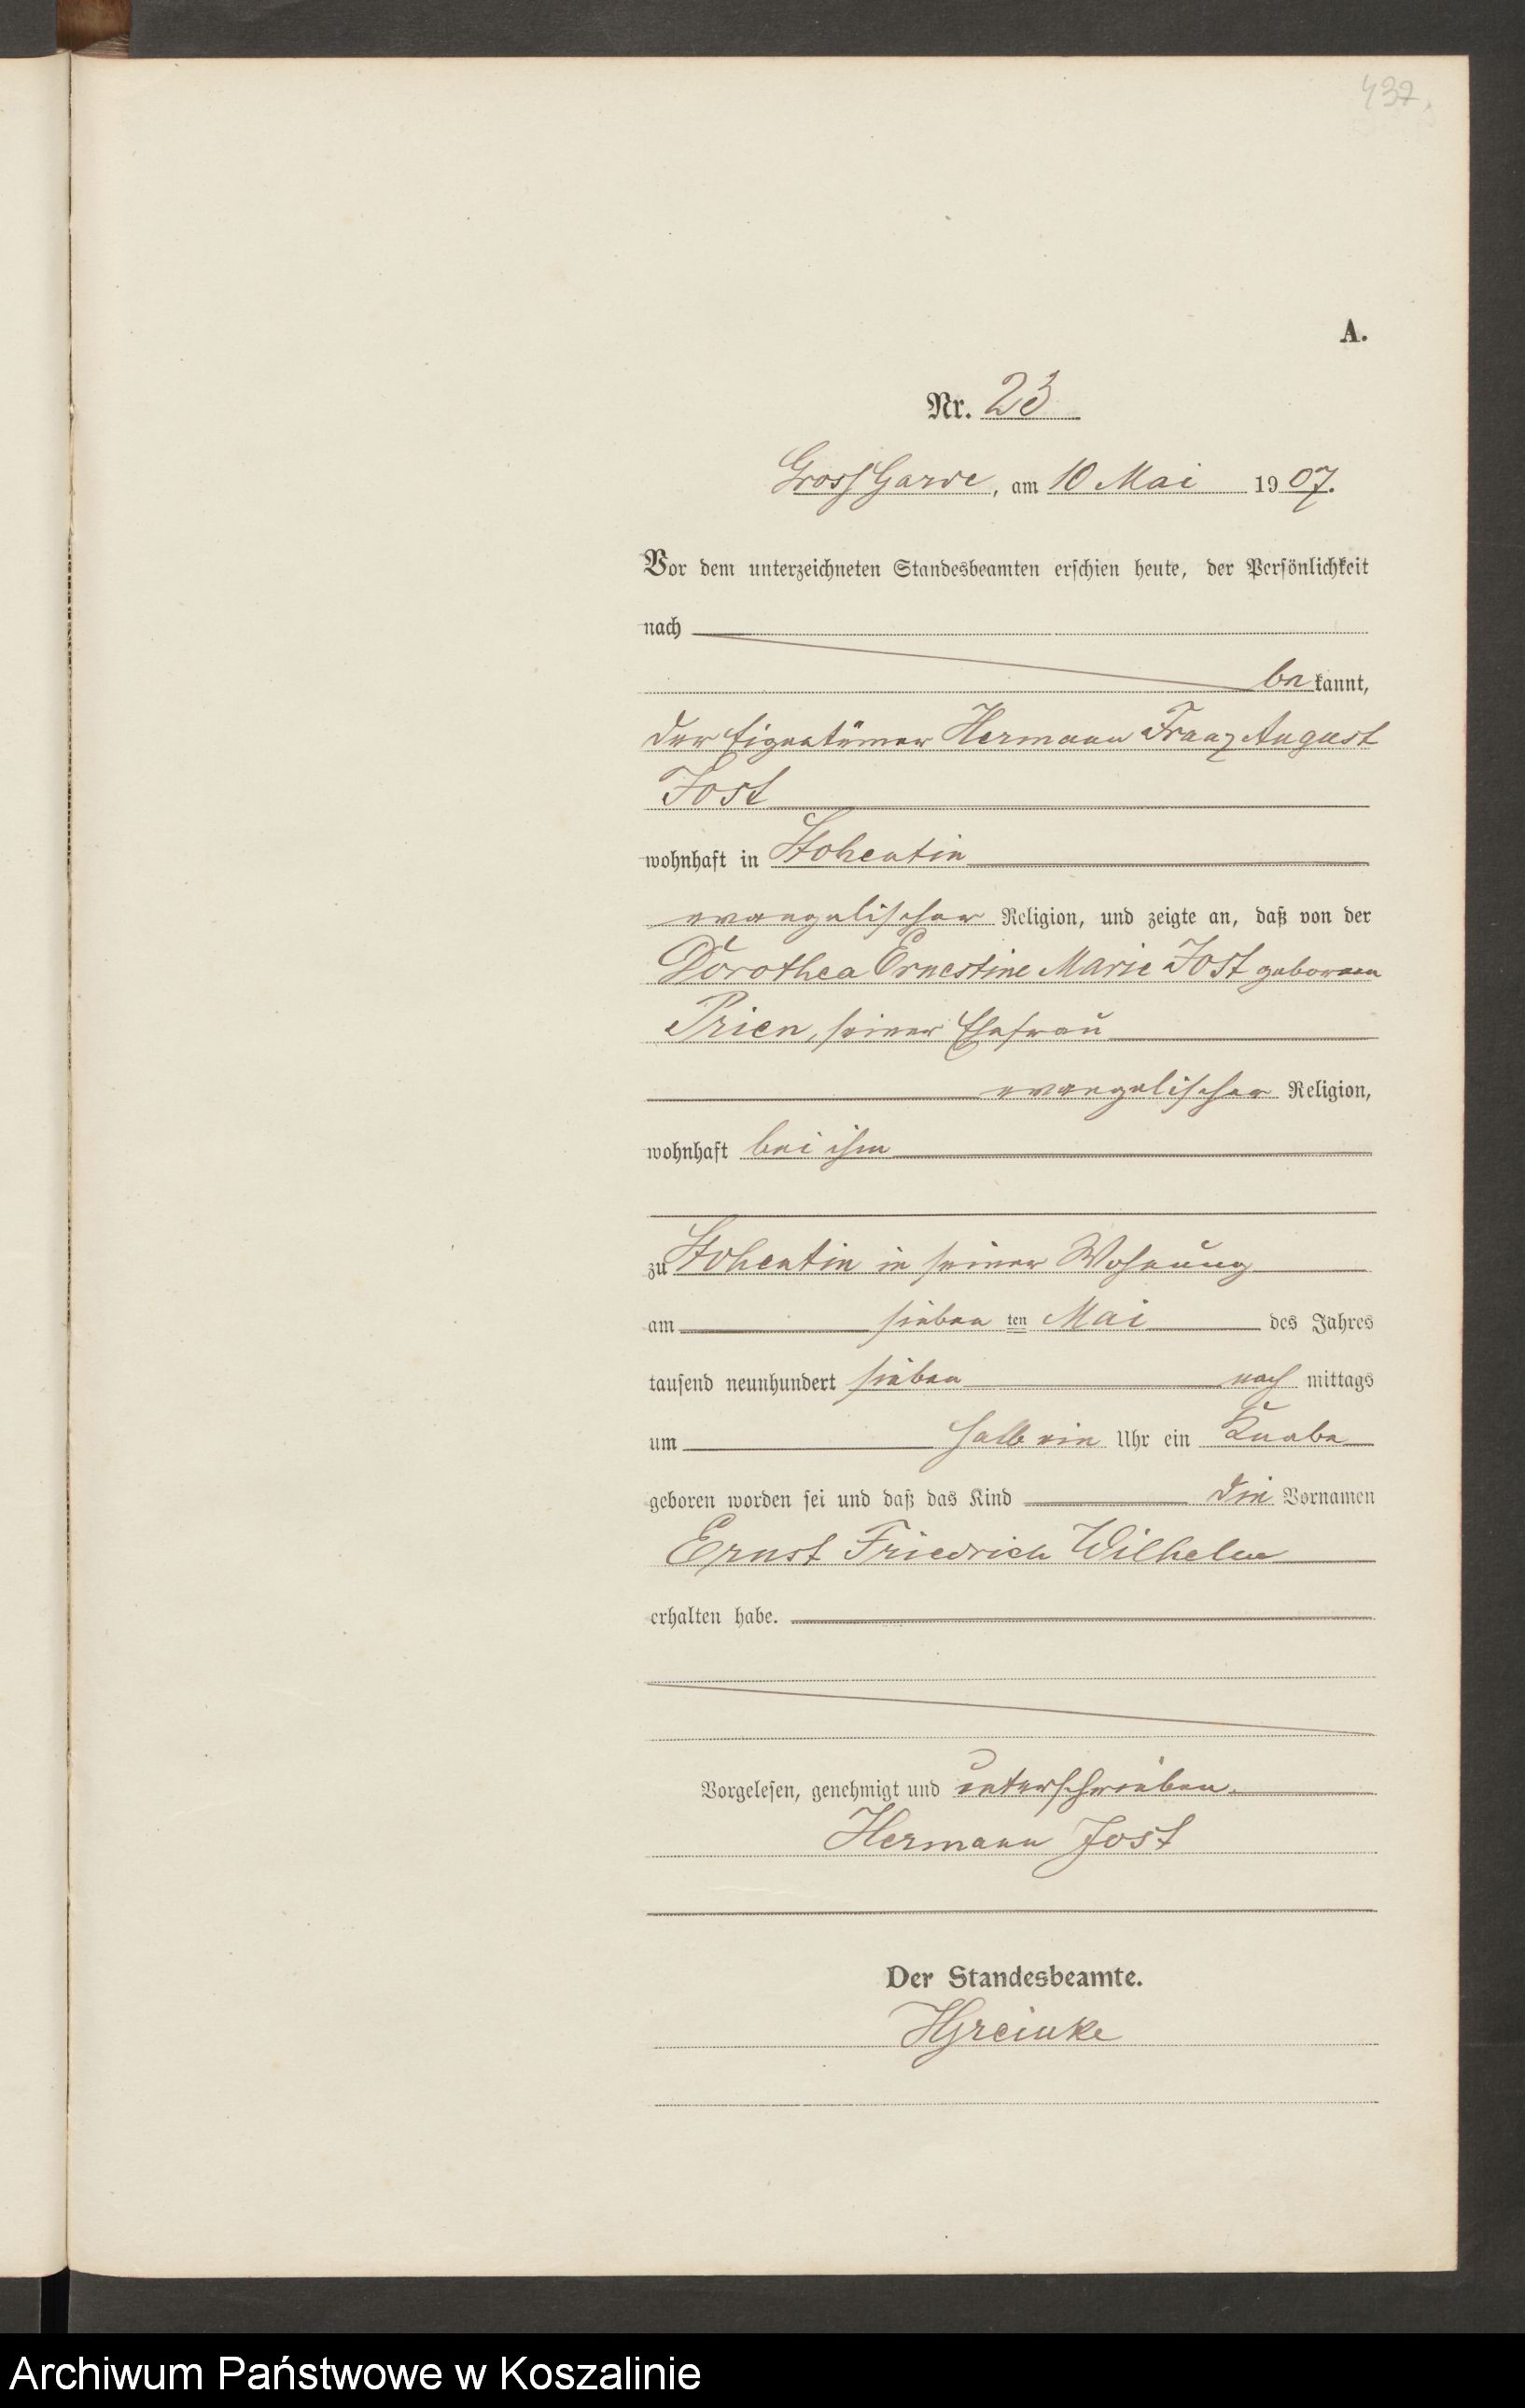 437.
A.
Nr. 23
Gross Garde, am 10 Mai 1907.
Vor dem unterzeichneten Standesbeamten erschien heute, der Persönlichkeit
nach
bekannt,
der Eigentümer Hermann Franz August
Jost
wohnhaft in Stohentin
evangelischer Religion, und zeigte an, daß von der
Dorothea Ernestine Marie Jost geborenen
Prien, seiner Ehefrau
evangelischer Religion,
wohnhaft bei ihm
zu Stohentin in seiner Wohnung
am siebenten Mai des Jahres
tausend neunhundert sieben nachmittags
um halb ein Uhr ein Knabe
geboren worden sei und daß das Kind die Vornamen
Ernst Friedrich Wilhelm
erhalten habe.
Vorgelesen, genehmigt und unterschrieben.
Hermann Jost
Der Standesbeamte.
HGreinke
Archiwum Państwowe w Koszalinie